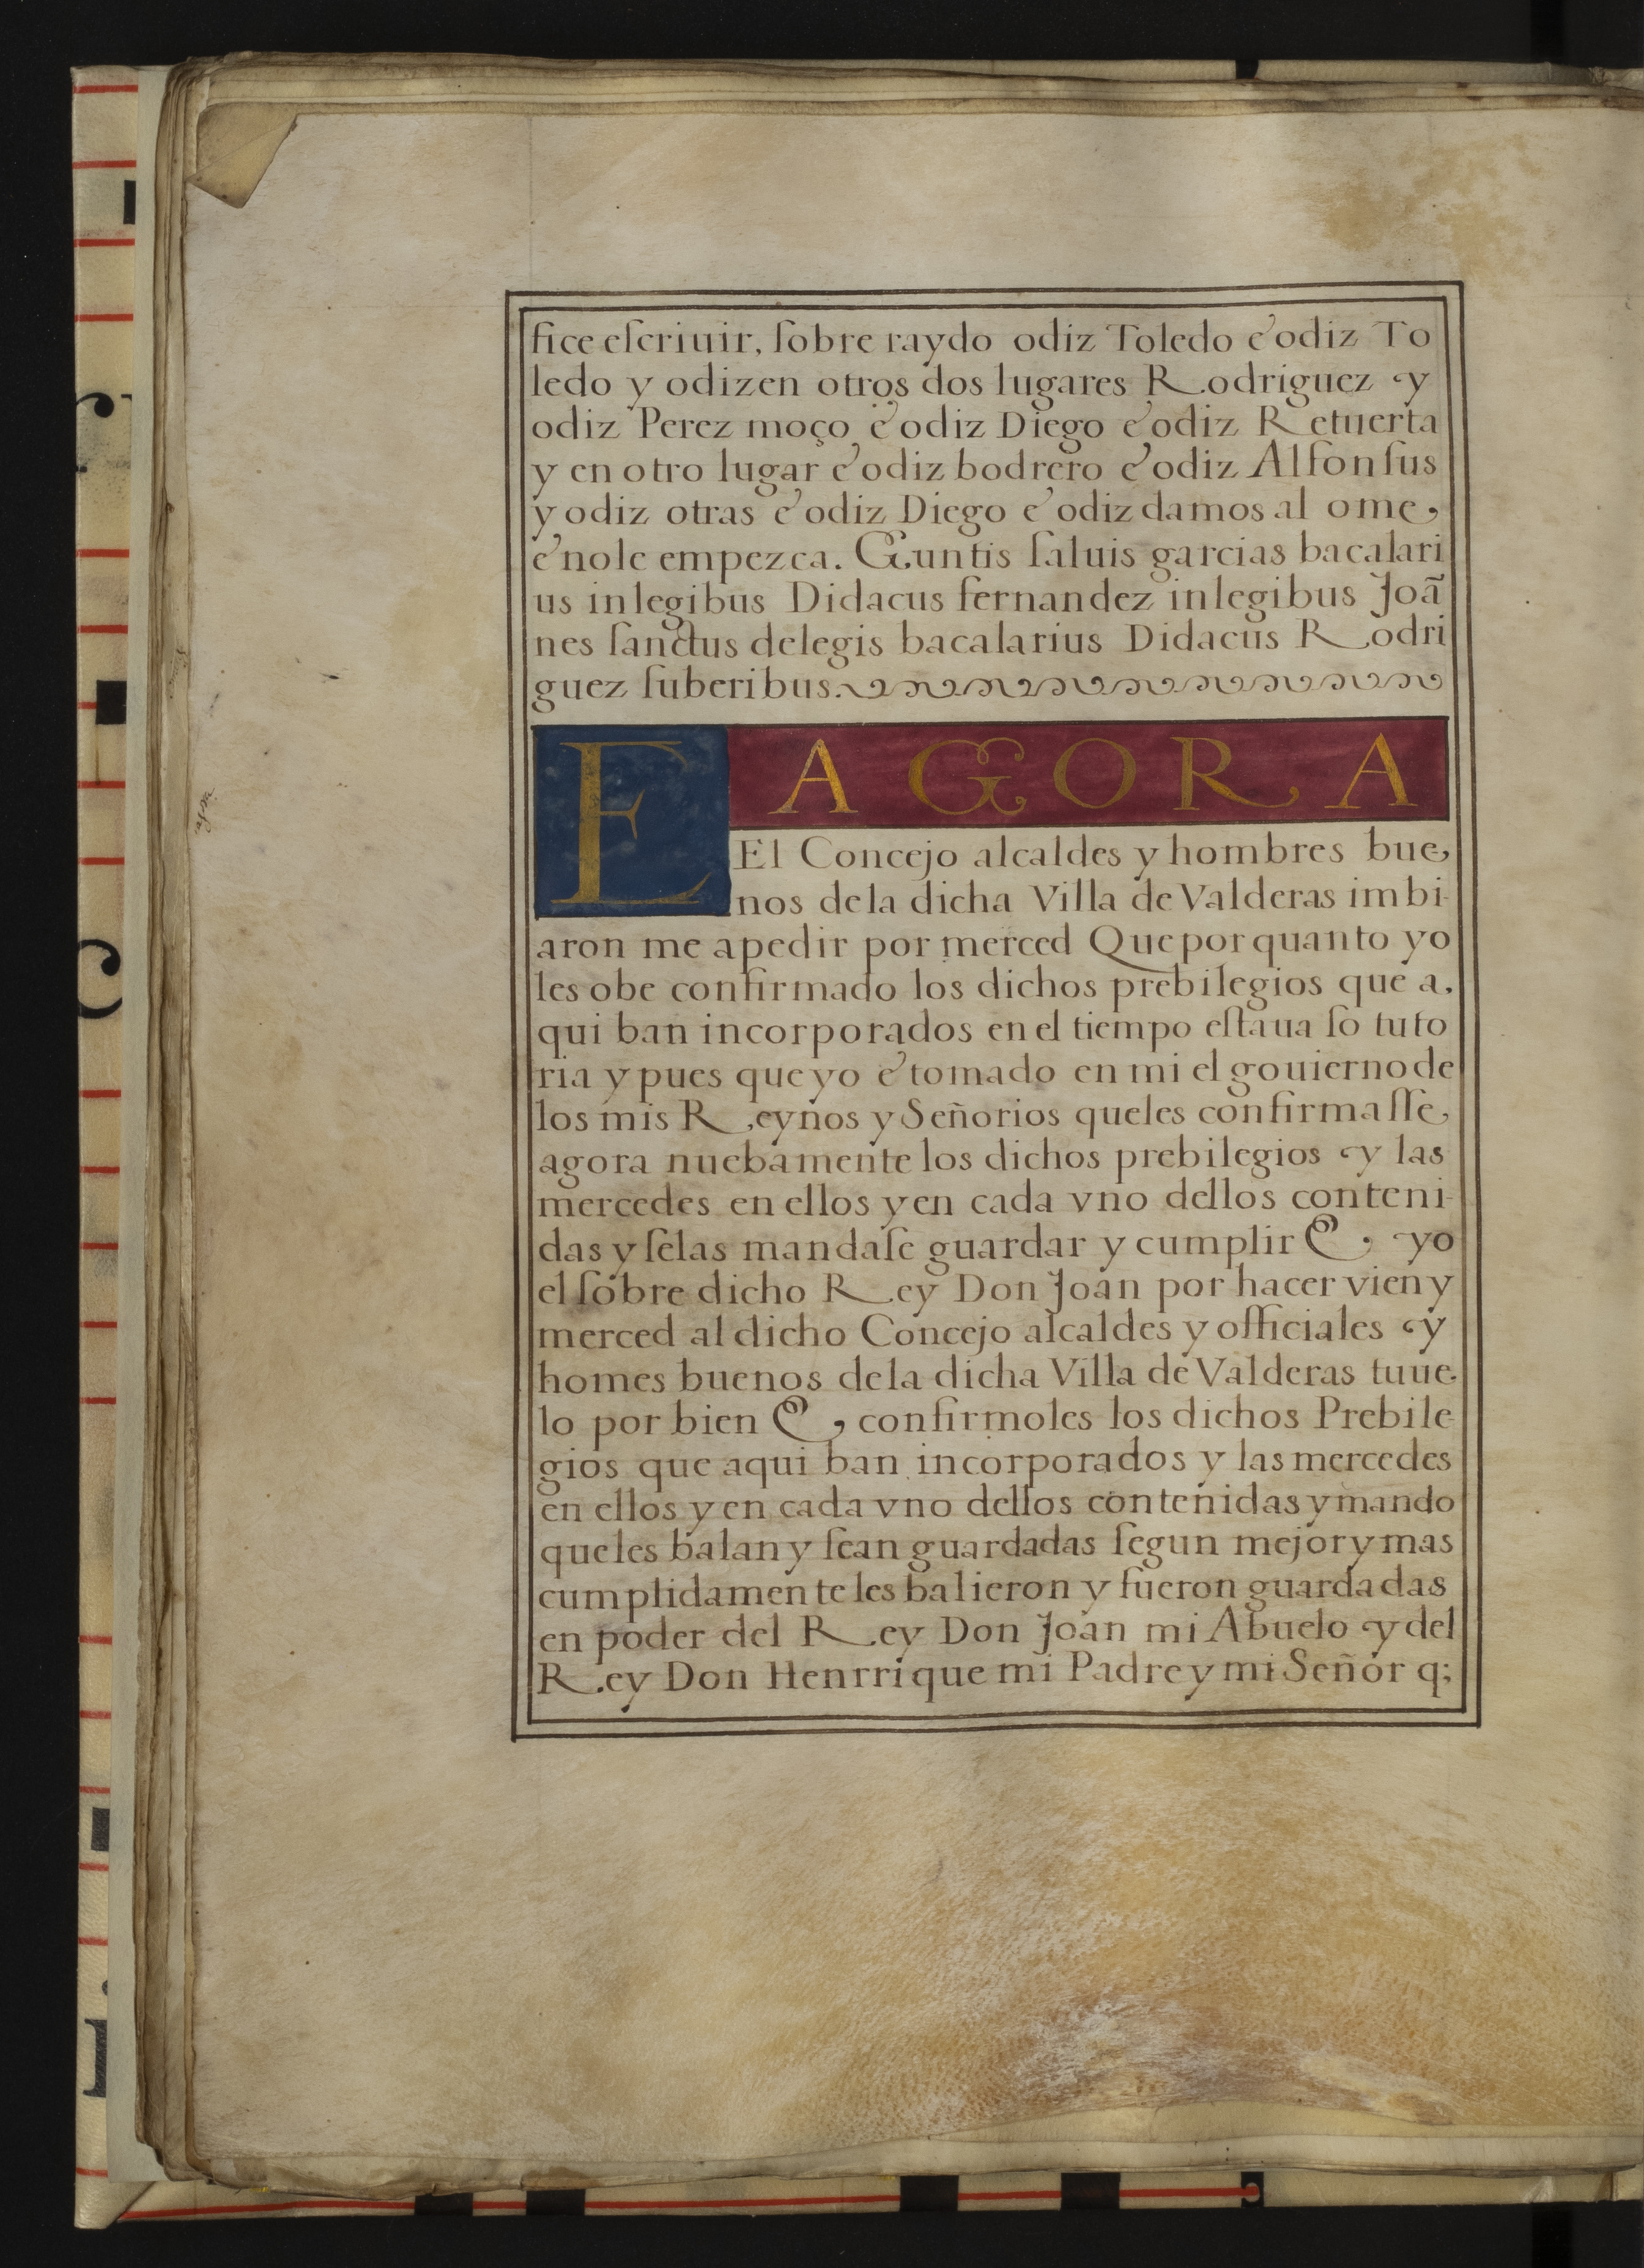 fice eſcriuir, ſobre raydo odiz Toledo e odiz To
ledo y odizen otros dos lugares Rodriguez y
odiz Perez moço e odiz Diego e odiz Retuerta
y en otro lugar e odiz bodrero e odiz Alfonſus
y odiz otras e odiz Diego e odiz damos al ome,
e nole empezca. Guntis ſaluis garcias bacalari
us inlegibus Didacus fernandez inlegibus Joã
nes ſanctus delegis bacalarius Didacus Rodri
guez ſuberibus.
E AGORA
El Concejo alcaldes y hombres bue,
nos dela dicha Villa de Valderas imbi-
aron me apedir por merced Que por quanto yo
les obe confirmado los dichos prebilegios que a,
qui ban incorporados en el tiempo eſtaua ſo tuto
ria y pues que yo e tomado en mi el gouierno de
los mis Reynos y Señorios queles confirmaſſe,
agora nuebamente los dichos prebilegios y las
mercedes en ellos y en cada vno dellos conteni-
das y ſelas mandaſe guardar y cumplir E, yo
el ſobre dicho Rey Don Joan por hacer vien y
merced al dicho Concejo alcaldes y officiales y
homes buenos dela dicha Villa de Valderas tuue-
lo por bien E, confirmoles los dichos Prebile
gios que aqui ban incorporados y las mercedes
en ellos y en cada vno dellos contenidas y mando
queles balan y ſean guardadas ſegun mejor y mas
cumplidamente les balieron y fueron guardadas
en poder del Rey Don Joan mi Abuelo y del
Rey Don Henrrique mi Padre y mi Señor q;